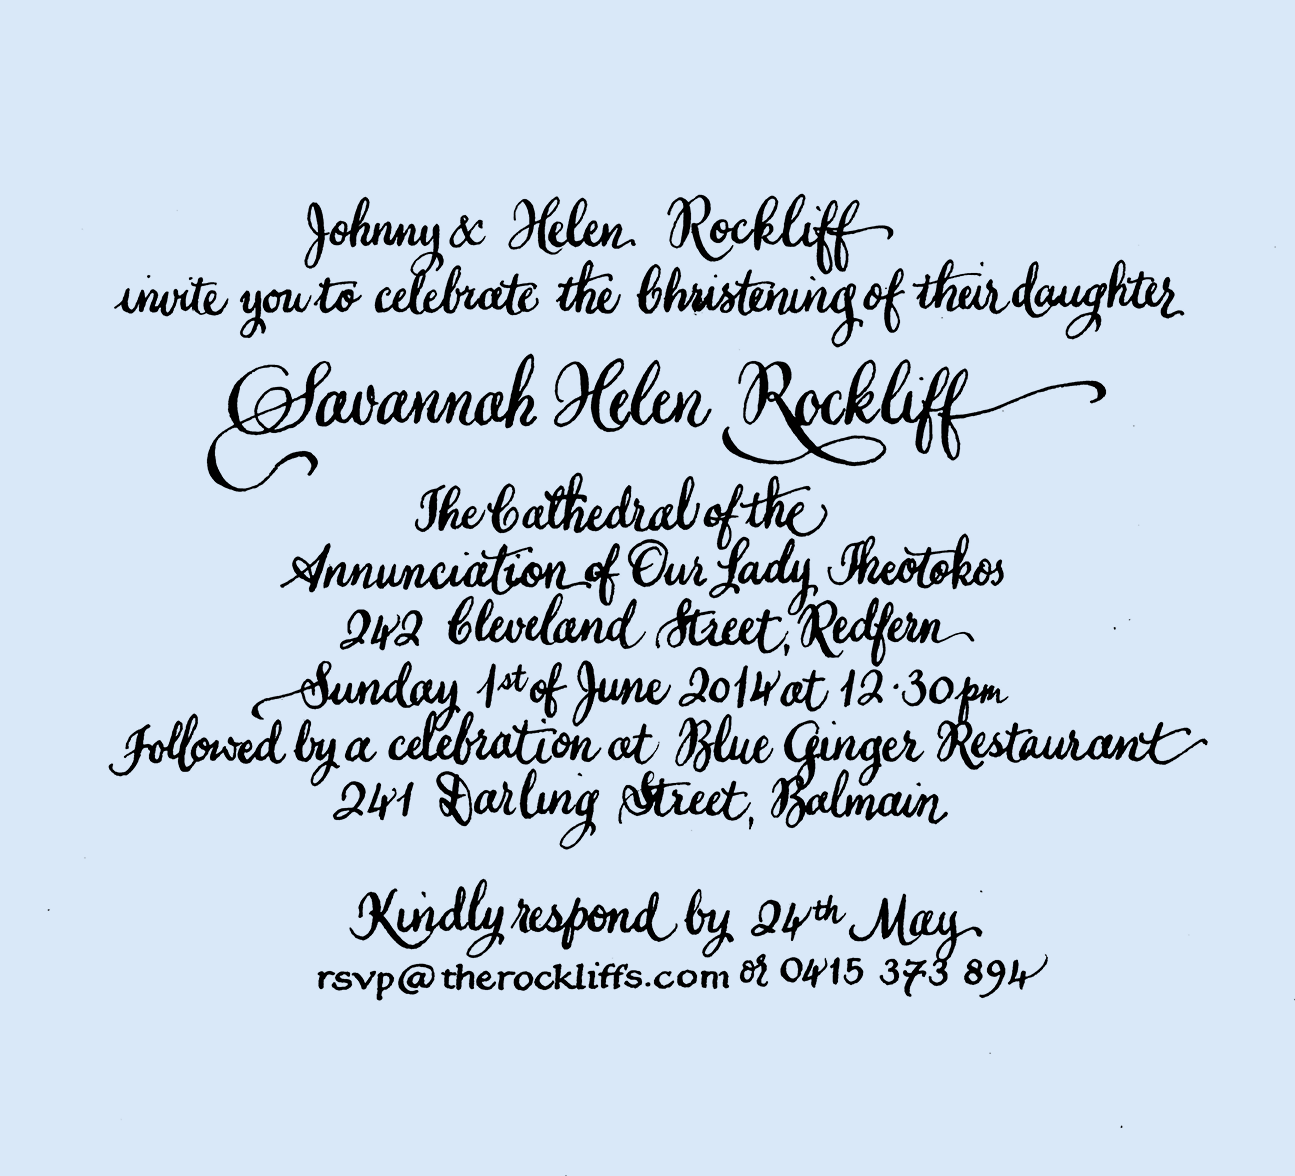 Johnny & Helen Rockliff
invite you to celebrate the Christening of their daughter
Savannah Helen Rockliff
The Cathedral of the
Annunciation of Our Lady Theotokos
242 Cleveland Street, Redfern
Sunday 1st of June 2014 at 12.30pm
Followed by a celebration at Blue Ginger Restaurant
241 Darling Street, Balmain
Kindly respond by 24th May
rsvp@therockliffs.com or 0415 373 894